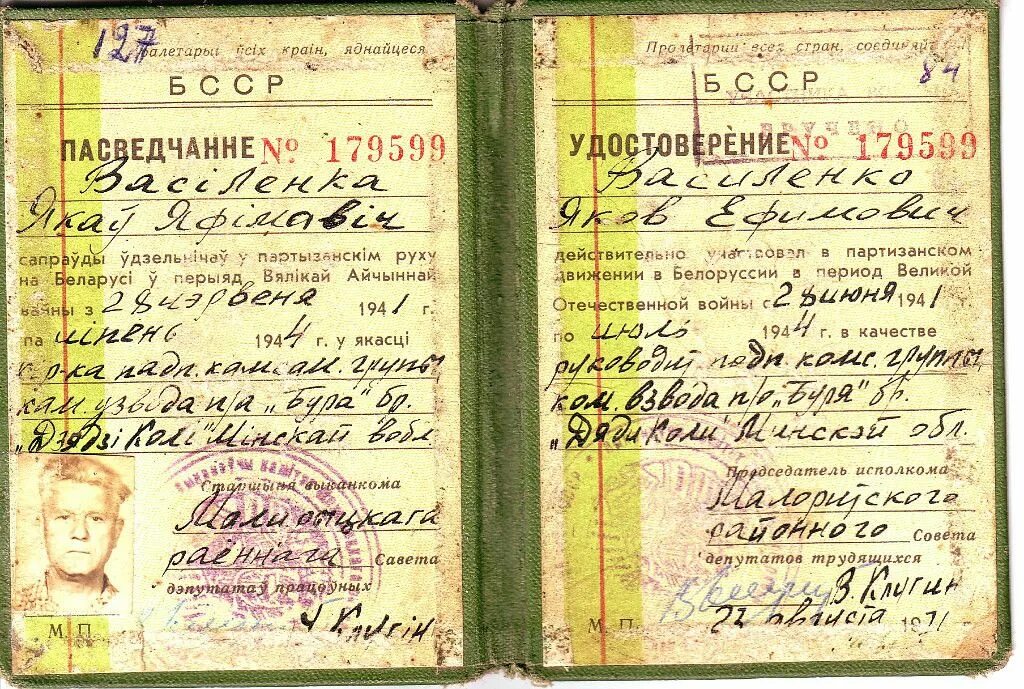 127
Пралетарыі ўсіх краін, яднайцеся
БССР
ПАСВЕДЧАННЕ № 179599
Васіленка
Якаў Яфімавіч
сапраўды ўдзельнічаў у партызанскім руху
на Беларусі ў перыяд Вялікай Айчыннай
вайны з 28 чэрвеня 1941 г.
па ліпень 1944 г. у якасці
падп. камсам. групы
кам. узвода п/а "Бура" бр.
"Дзядзі Колі" Мінскай вобл
Старшыня выканкома
Маларыцкага
раённага Савета
дэпутатаў працоўных
Клугін
М. П.
Пролетарии всех стран, соединяй
84
БССР
УДОСТОВЕРЕНИЕ № 179599
Василенко
Яков Ефимович
действительно участвовал в партизанском
движении в Белоруссии в период Великой
Отечественной войны с 28 июня 1941 г.
по июль 1944 г. в качестве
руководит. подп. комс. группы
ком. взвода п/о "Буря" бр.
"Дяди Коли" Минской обл.
Председатель исполкома
Малоритского
районного Совета
депутатов трудящихся
В. Клугин
М. П. 22 августа 1971 г.